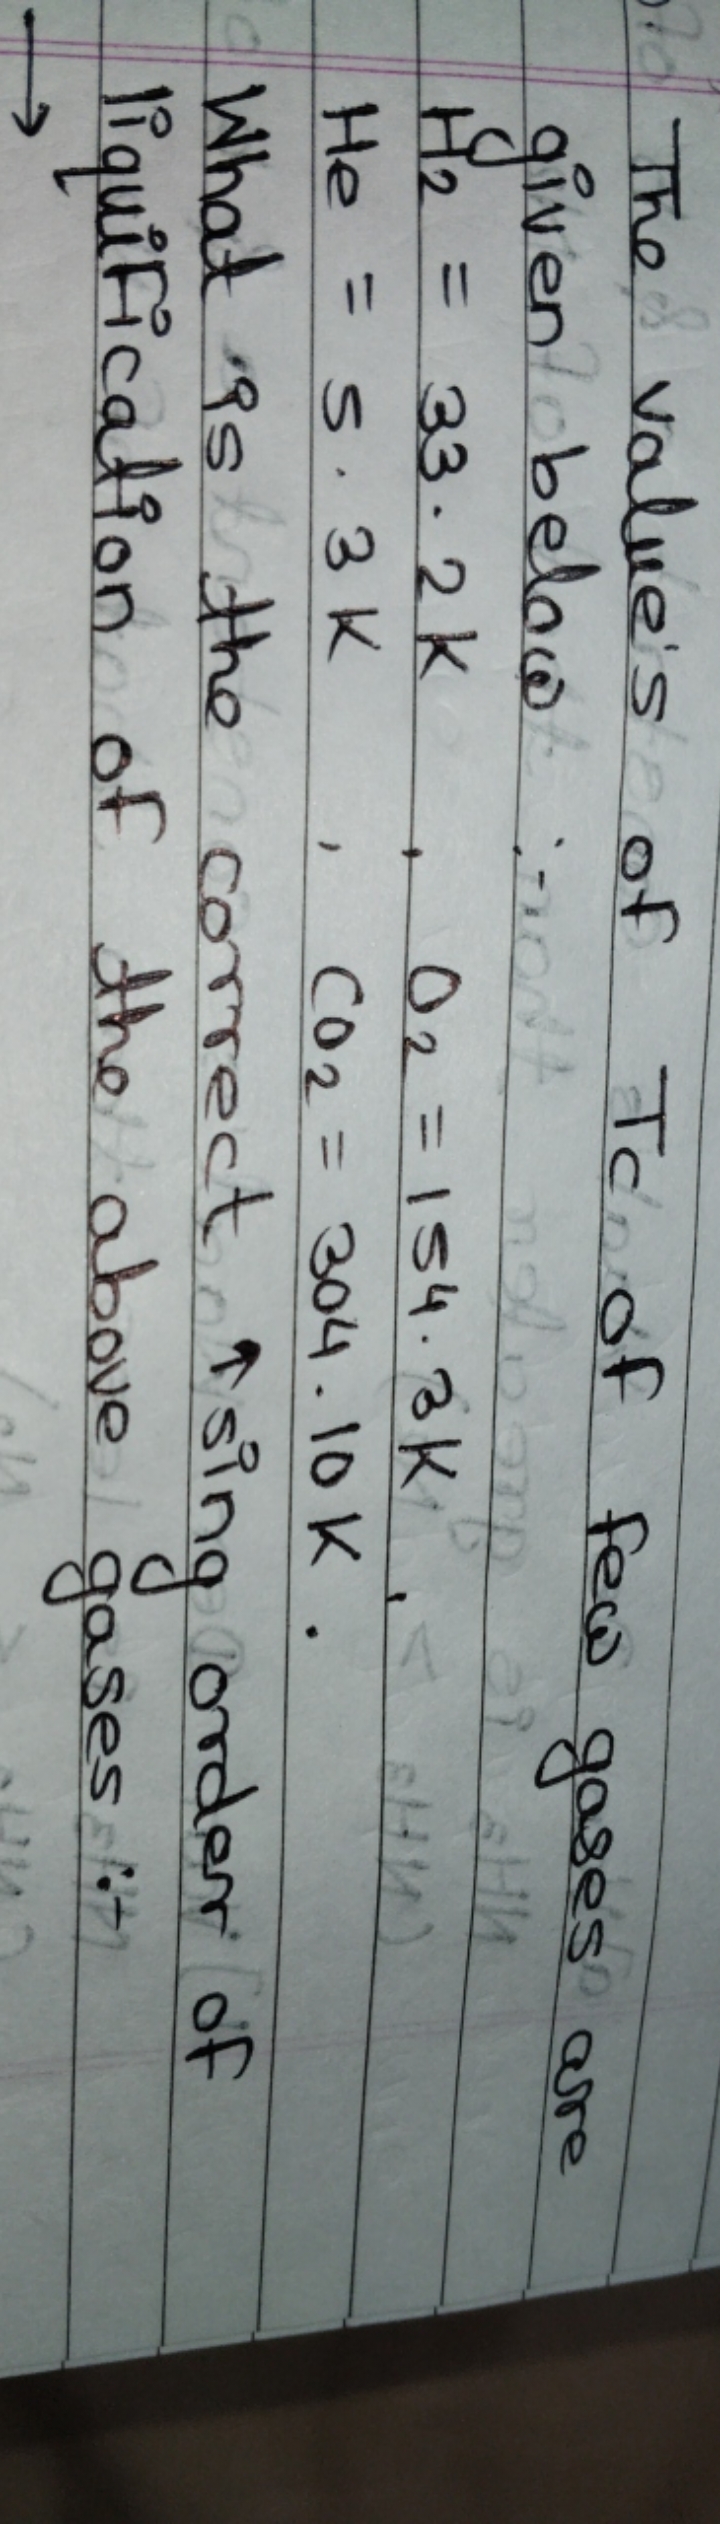 The value's of Tc of few gases are
given below :-
H2 = 33.2K , O2 = 154.3K ,
He = 5.3K , CO2 = 304.10K .
What is the correct ↑sing order of
liquification of the above gases :-
→